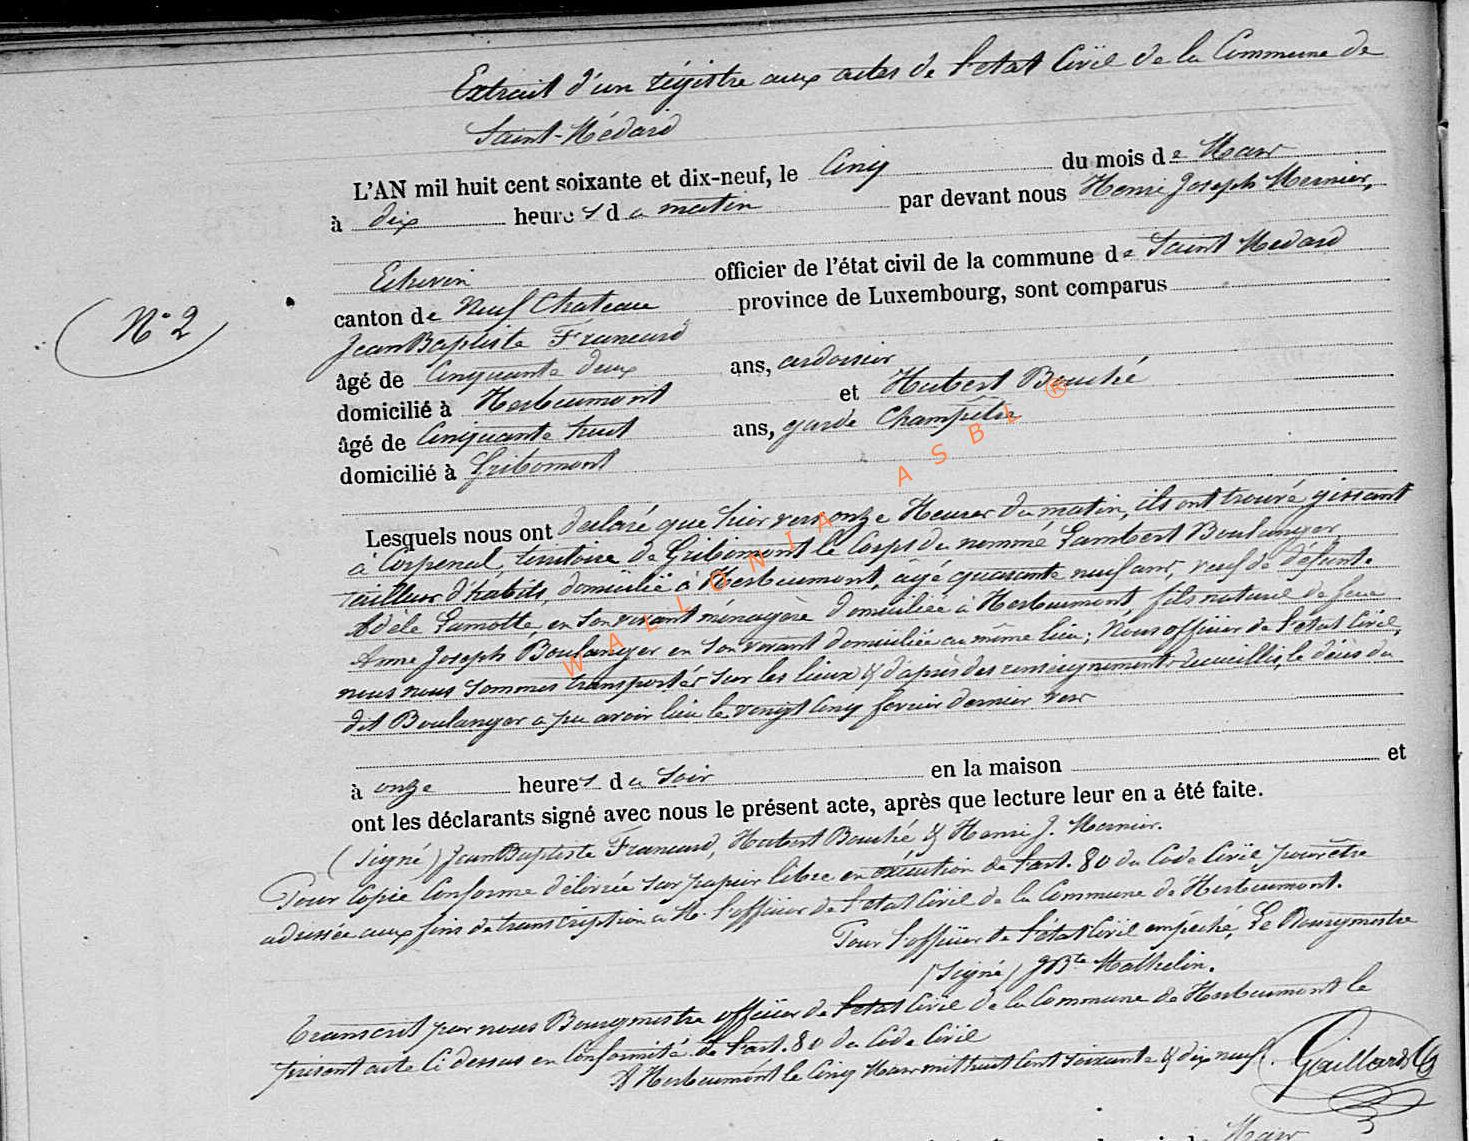 Extrait d'un régistre aux actes de l'etat Civil de la Commune de
Saint-Médard
L'AN mil huit cent soixante et dix-neuf, le Cinq du mois de Mars
à dix heures du matin par devant nous Henri Joseph Mernier,
Echevin officier de l'état civil de la commune de Saint Medard
N° 2
canton de Neuf Chateau province de Luxembourg, sont comparus
Jean Baptiste Francard
âgé de Cinquante deux ans, ardoisier
domicilié à Herbeumont et Hubert Bouché
âgé de Cinquante huit ans, garde Champêtre
domicilié à Gribomont
Lesquels nous ont declaré que hier vers onze Heures du matin, ils ont trouvé gissant
à territoire de Gribomont le Corps du nommé Lambert Boulanger
tailleur d'habits, domicilié à Herbeumont, âgé quarante neuf ans, veuf de défunte
Adèle Lamotte, en son vivant ménagère domiciliée à Herbeumont, fils naturel de feue
Anne Joseph Boulanger en son vivant domiciliée au même lieu; Nous officier de l'etat Civil,
nous nous sommes transportés sur les lieux & d'après des renseignements recueillis, le décès du
dit Boulanger a pu avoir lieu le vingt Cinq fevrier dernier vers
à onze heures du soir en la maison et
ont les déclarants signé avec nous le présent acte, après que lecture leur en a été faite.
(Signé) Jean Baptiste Francard, Hubert Bouché & Henri J. Mernier.
Pour Copie Conforme délivrée sur papier libre en exécution de l'art. 80 du Code Civil pour être
adressée aux fins de transcription a M. l'officier de l'etat Civil de la Commune de Herbeumont.
Pour l'officier de l'etat Civil empêché, Le Bourgmestre
(Signé) J Bte Mathelin.
Transcrit par nous Bourgmestre officier de l'etat Civil de la Commune de Herbeumont le
présent acte Ci dessus en Conformité de l'art. 80 du Code Civil
A Herbeumont le Cinq Mars mil huit Cent soixante & dix neuf. Gaillard
WALLONIA ASBL ®
Mars